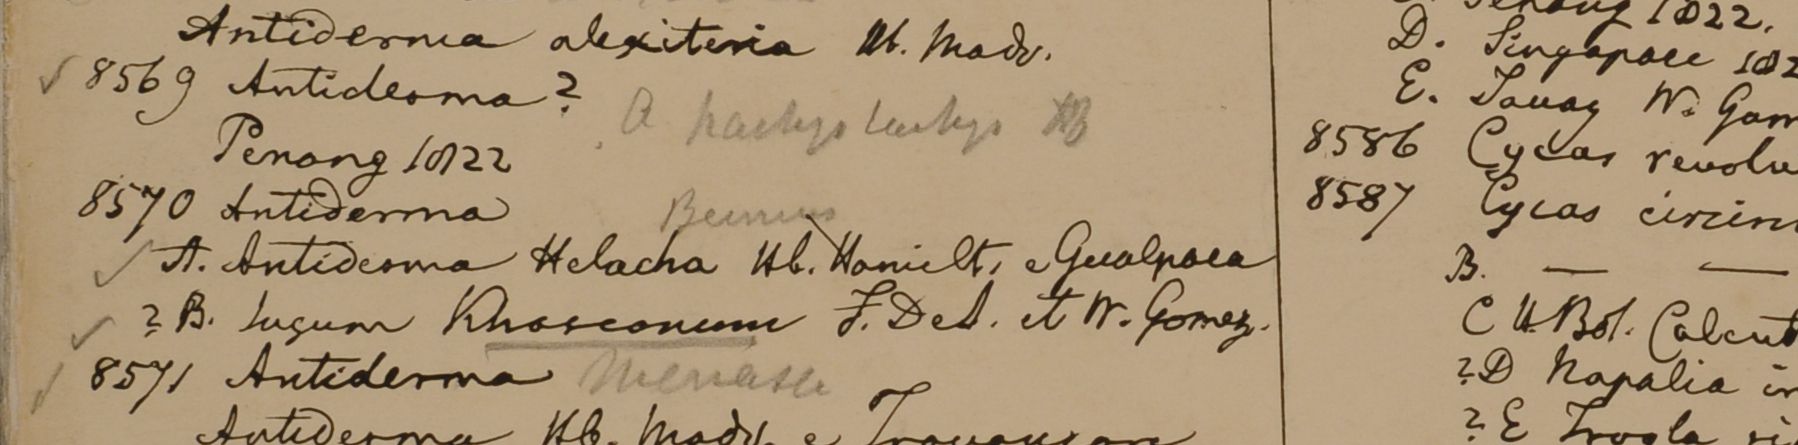 Antiderma alexiteria Hb. Madr.
8569 Antidesma ?
A pachystachys HB
Penang 1822
8570 Antiderma
Bunius
A. Antidesma Helacha Hb. Hamilt. e Gualpara
? B. Jugum Khaseanum F. DeS. et W. Gomez.
8571 Antiderma Menasu
Antiderma Hb. Madr. e Travancore
Penang 1822.
D. Singapore 182
E. Tavay W. Gom
8586 Cycas revolu
8587 Cycas circin
B. — —
C H. Bot. Calcut
? D Napalia in
? E